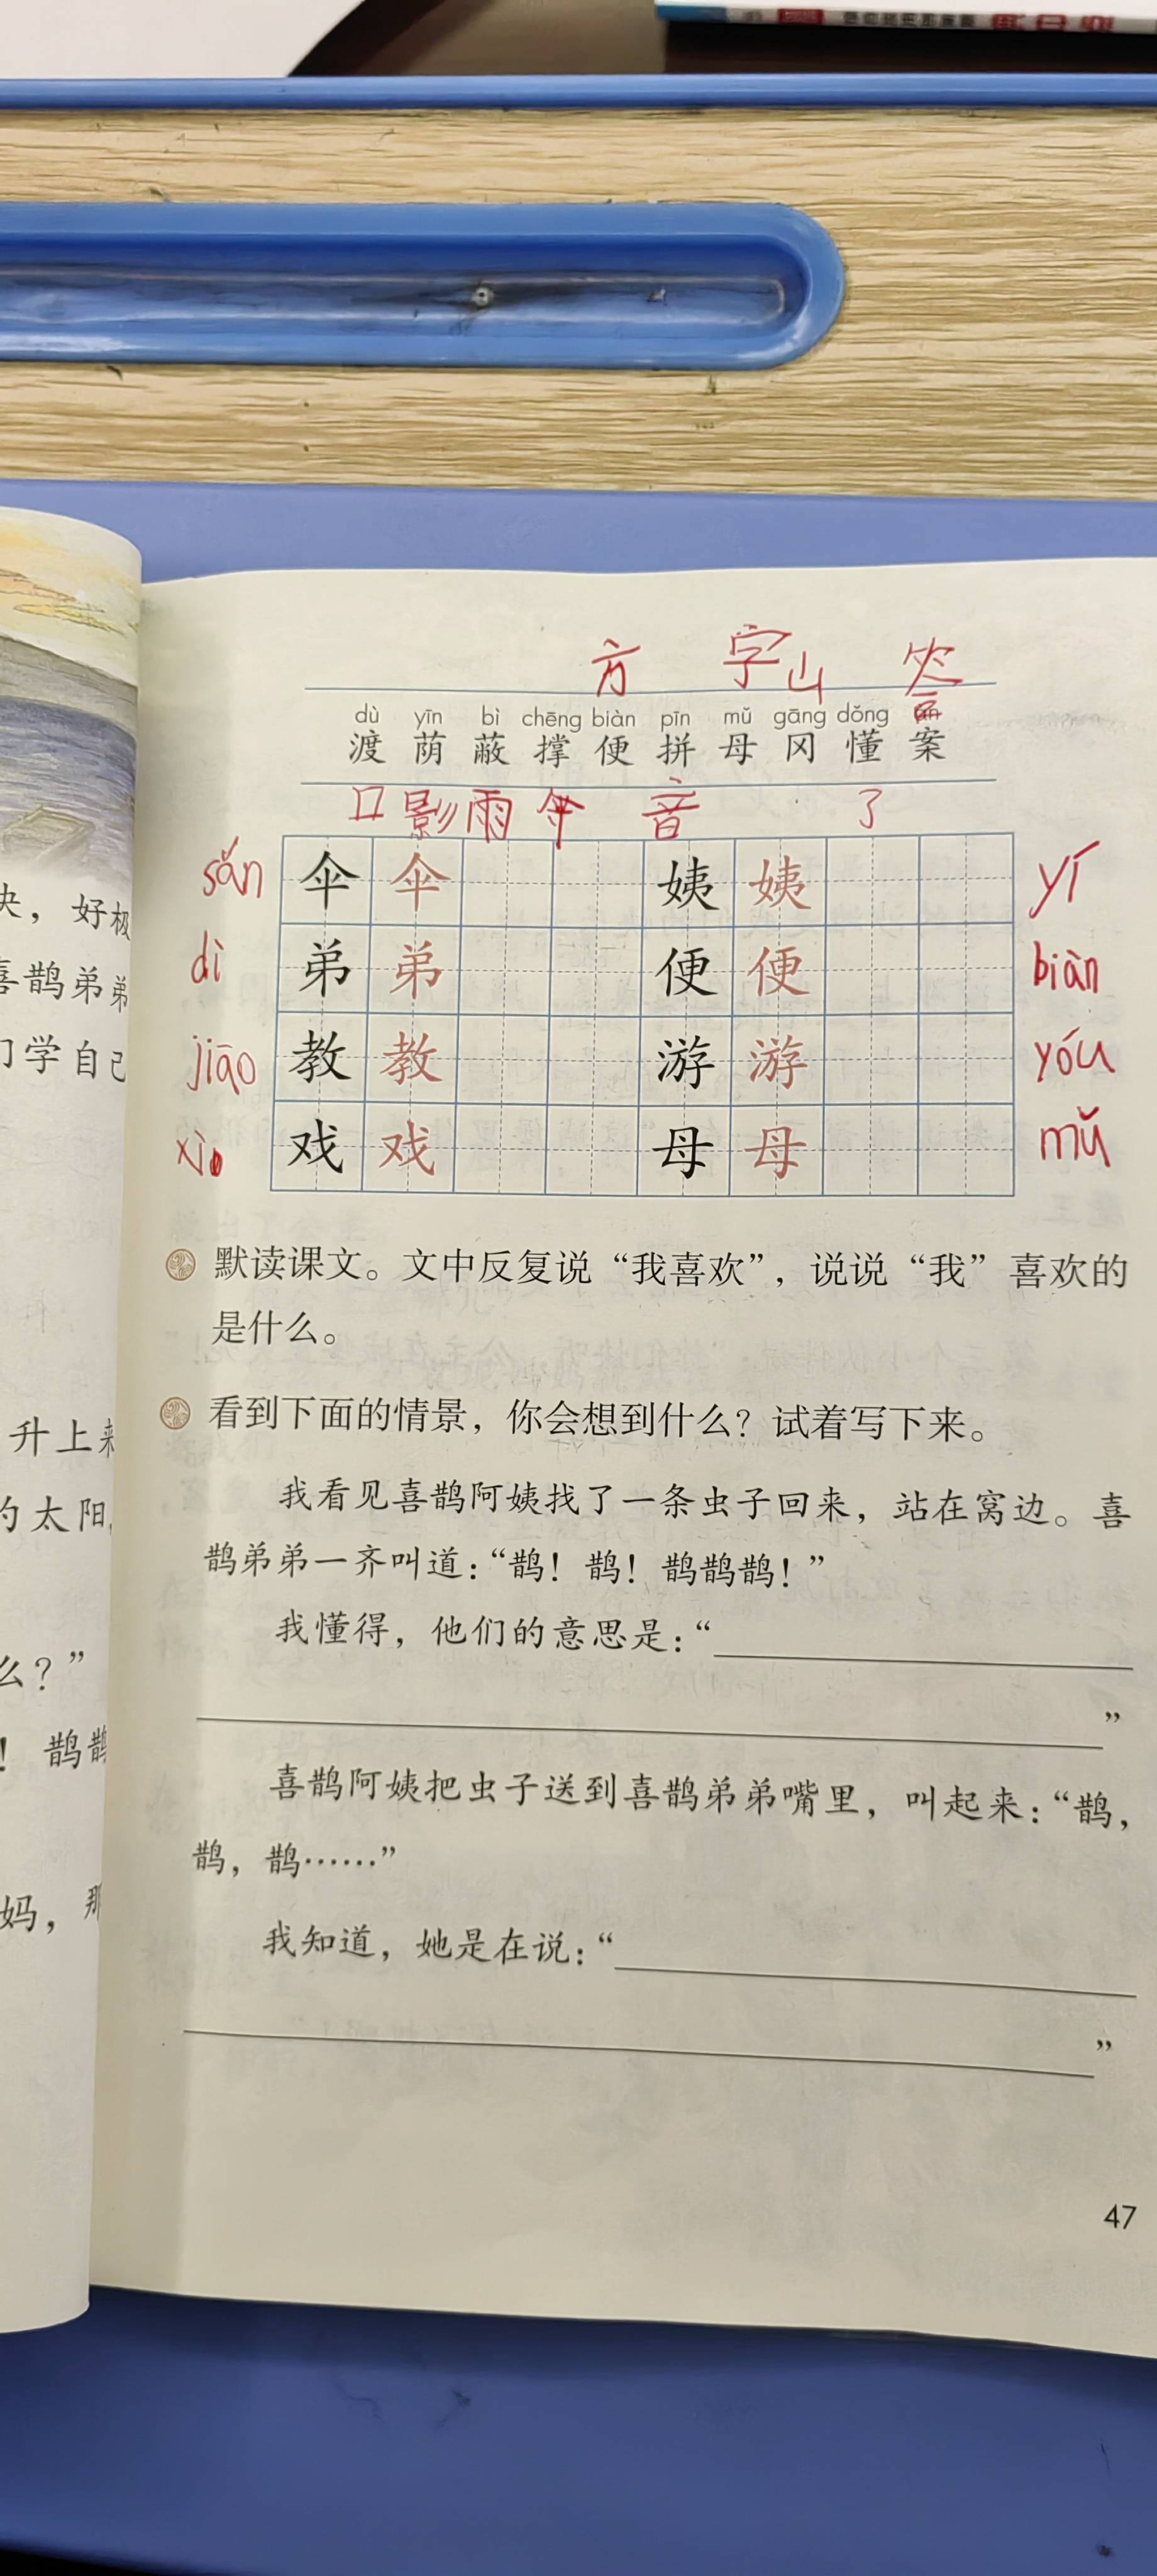 方 字 山 答
dù yīn bì chēng biàn pīn mǔ gāng dǒng àn
渡 荫 蔽 撑 便 拼 母 冈 懂 案
口 影 雨 伞 音 了
sǎn 伞 伞 姨 姨 yí
dì 弟 弟 便 便 biàn
jiāo 教 教 游 游 yóu
xì 戏 戏 母 母 mǔ
默读课文。文中反复说“我喜欢”，说说“我”喜欢的
是什么。
看到下面的情景，你会想到什么？试着写下来。
我看见喜鹊阿姨找了一条虫子回来，站在窝边。喜
鹊弟弟一齐叫道：“鹊！鹊！鹊鹊鹊！”
我懂得，他们的意思是：“
”
喜鹊阿姨把虫子送到喜鹊弟弟嘴里，叫起来：“鹊，
鹊，鹊……”
我知道，她是在说：“
”
47
，好极
喜鹊弟弟
门学自己
升上来
的太阳
么？”
！鹊鹊
妈，那